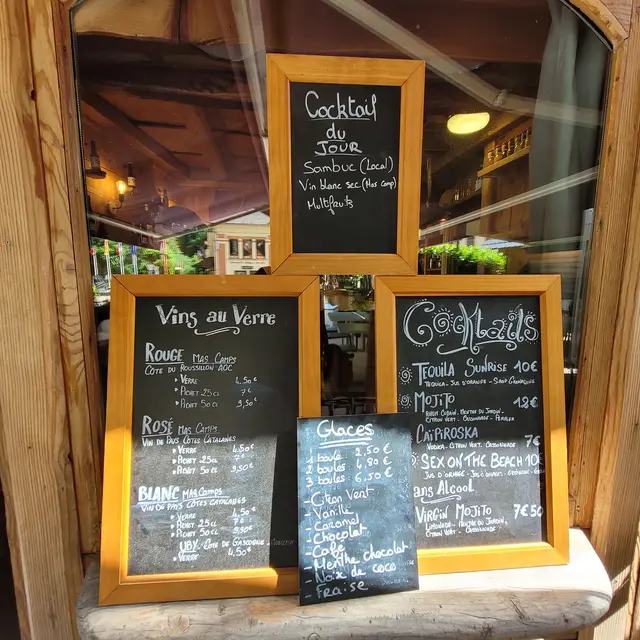 Cocktail
du
JOUR
Sambuc (Local)
Vin blanc sec (Mas camp)
Multifruits
Vins au Verre
ROUGE MAS CAMPS
CÔTE DU ROUSSILLON AOC
• VERRE 4,50€
• PICHET 25cl 7€
• PICHET 50cl 9,50€
ROSÉ MAS CAMPS
VIN DE PAYS CÔTES CATALANES
• VERRE 4.50€
• PICHET 25cl 7€
• PICHET 50cl 9,50€
BLANC MAS CAMPS
VIN DE PAYS CÔTES CATALANES
• VERRE 4.50€
• PICHET 25cl 7€
• PICHET 50cl 9.50€
UBY CÔTE DE GASCOGNE
• VERRE 4.50€
Glaces
1 boule 2,50€
2 boules 4,80€
3 boules 6,50€
- Citron Vert
- Vanille
- Caramel
- Chocolat
- Café
- Menthe chocolat
- Noix de coco
- Fraise
Cocktails
TEQUILA SUNRISE 10€
TEQUILA - JUS D'ORANGE - SIROP GRENADINE
MOJITO 12€
RHUM CUBAIN - MENTHE DU JARDIN
CITRON VERT - CASSONNADE - PERRIER
CAÏPIROSKA 7€
VODKA - CITRON VERT - CASSONNADE
SEX ON THE BEACH 10€
ans Alcool
VIRGIN MOJITO 7€50
LIMONADE - MENTHE DU JARDIN,
CITRON VERT - CASSONNADE